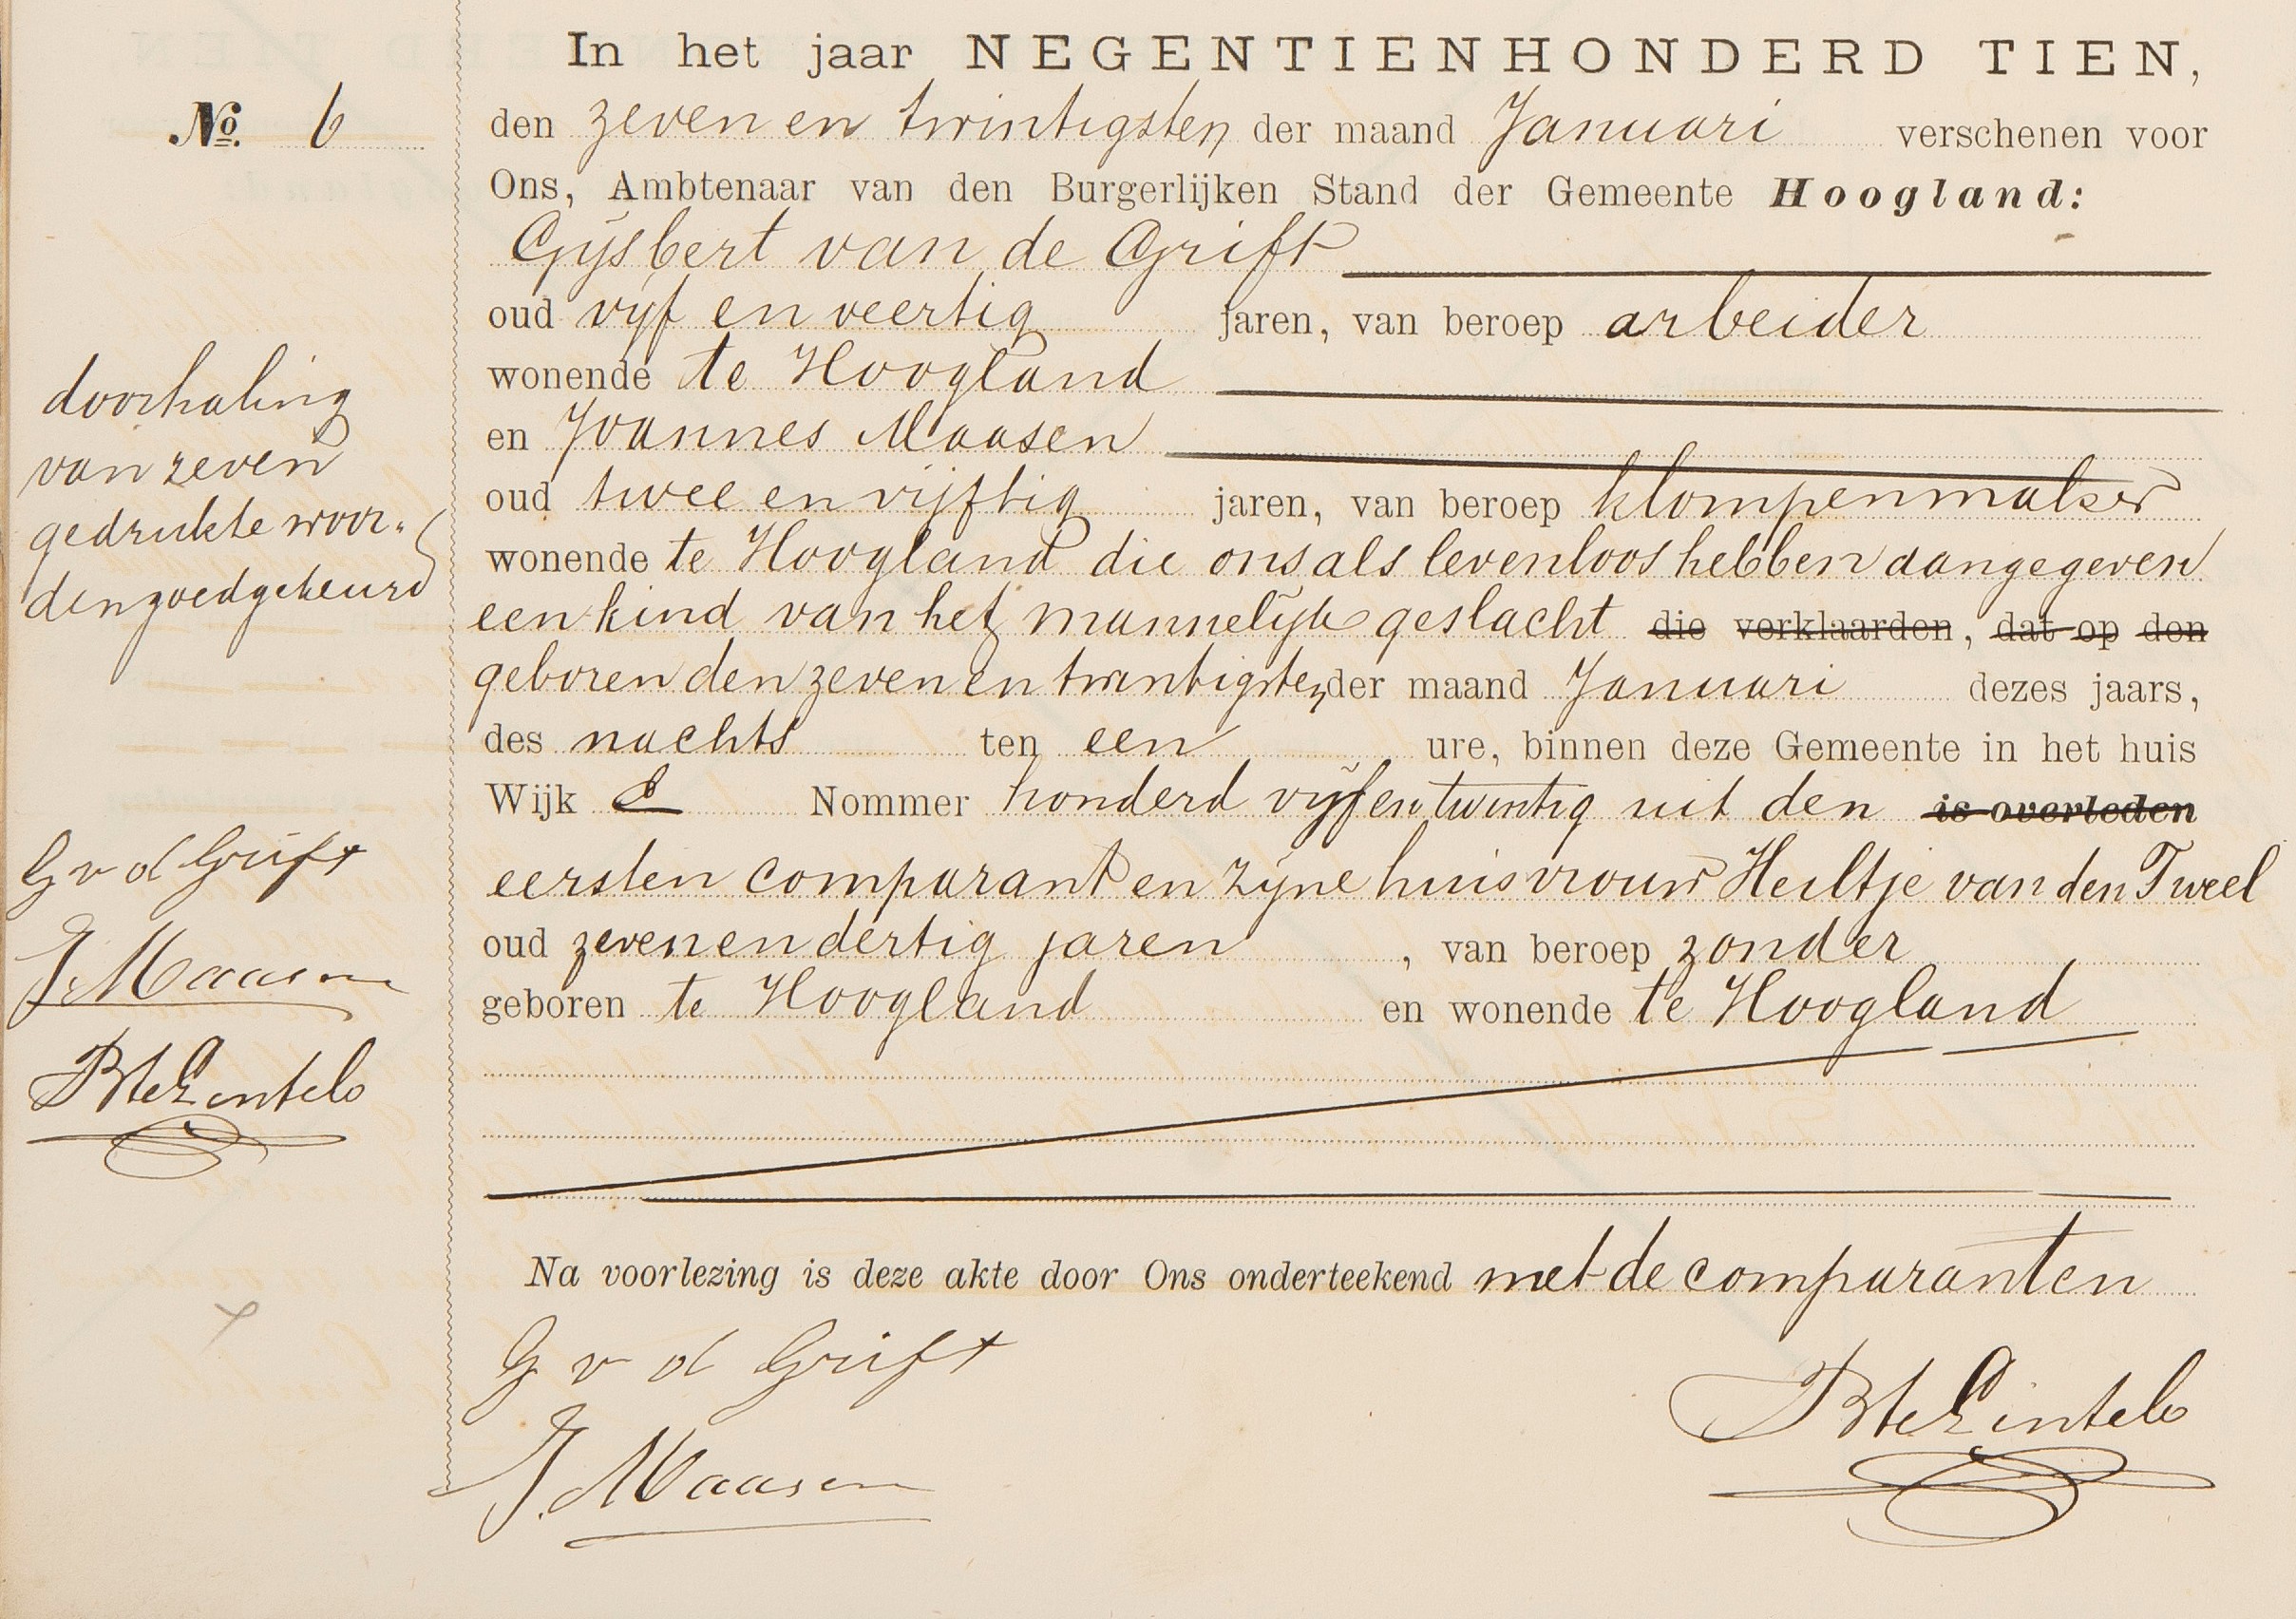 In het jaar NEGENTIENHONDERD TIEN,
No. 6
den zeven en twintigsten der maand Januari verschenen voor
Ons, Ambtenaar van den Burgerlijken Stand der Gemeente Hoogland:
Gijsbert van de Grift
oud vijf en veertig jaren, van beroep arbeider
wonende te Hoogland
en Joannes Maasen
oud twee en vijftig jaren, van beroep klompenmaker
wonende te Hoogland die ons als levenloos hebben aangegeven
een kind van het mannelijk geslacht die verklaarden, dat op den
geboren den zeven en twintigsten der maand Januari dezes jaars,
des nachts ten een ure, binnen deze Gemeente in het huis
Wijk Nommer honderd vijf en twintig uit den is overleden
eersten comparant en zijne huisvrouw Heiltje van den Tweel
oud zeven en dertig jaren, van beroep zonder
geboren te Hoogland en wonende te Hoogland
Na voorlezing is deze akte door Ons onderteekend met de comparanten
G v d Grift
J. Maasen
doorhaling
van zeven
gedrukte woor-
den goedgekeurd
G v d Grift
J. Maasen